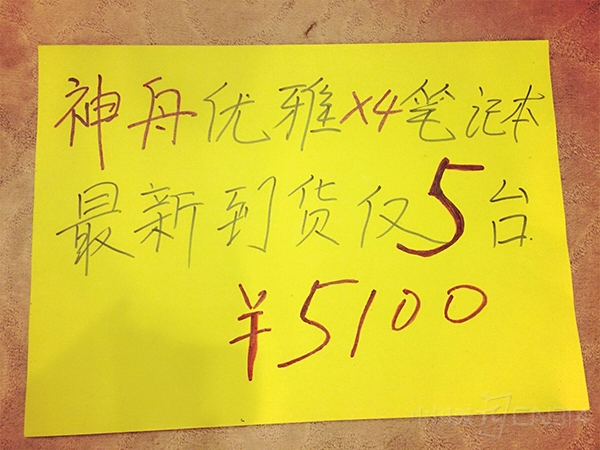 神舟优雅X4笔记本
最新到货仅5台
¥5100